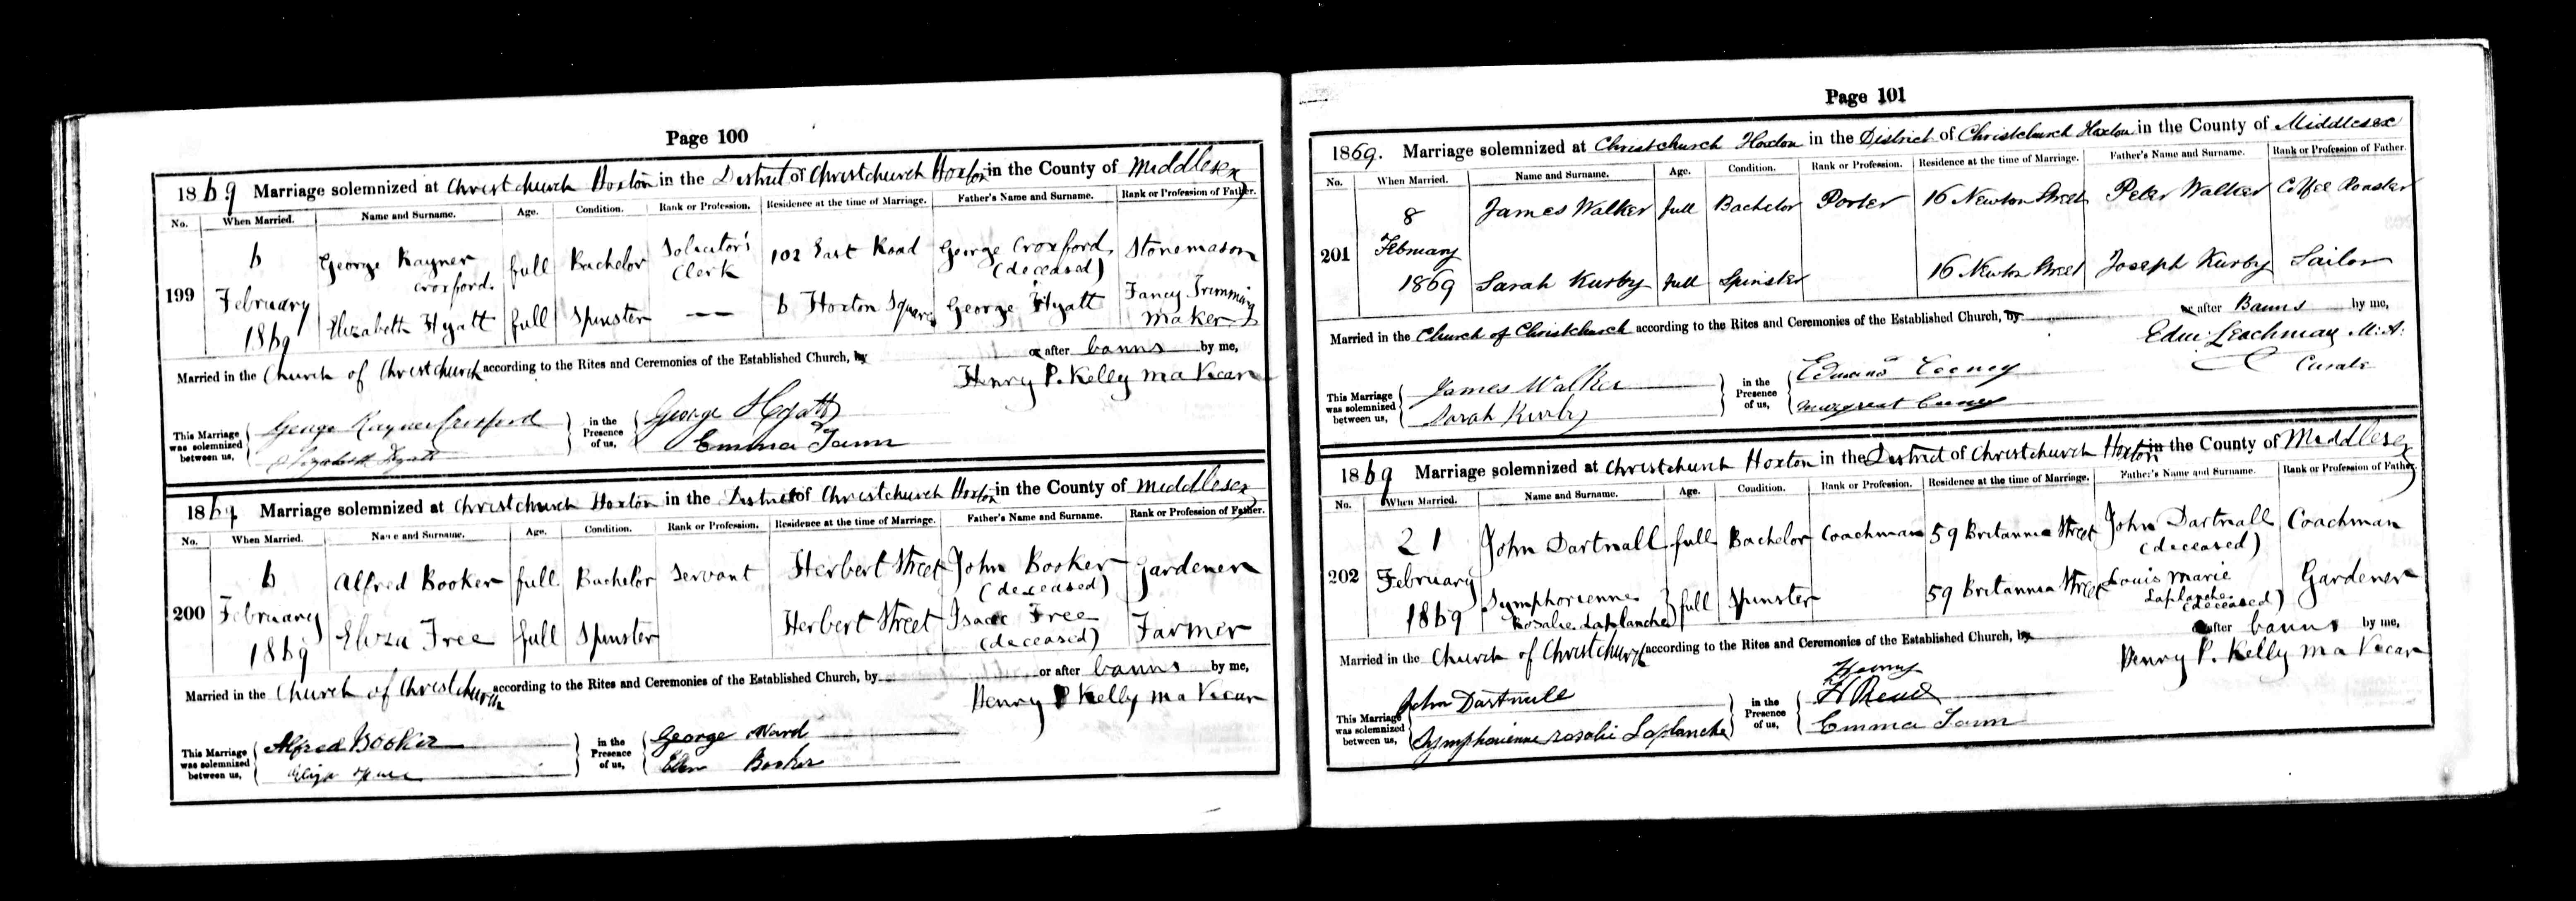 Page 100
1869 Marriage solemnized at Christchurch Hoxton in the District of Christchurch Hoxton in the County of Middlesex
No. When Married. Name and Surname. Age. Condition. Rank or Profession. Residence at the time of Marriage. Father's Name and Surname. Rank or Profession of Father.
199 6 February 1869 George Rayner Croxford full Bachelor Solicitor's Clerk 102 East Road George Croxford (deceased) Stonemason
Elizabeth Hyatt full Spinster — 6 Hoxton Square George Hyatt Fancy Trimming Maker
Married in the Church of Christchurch according to the Rites and Ceremonies of the Established Church, by or after banns by me,
Henry P. Kelly MA Vicar
This Marriage was solemnized between us, George Rayner Croxford Elizabeth Hyatt in the Presence of us, George Hyatt Emma Tann
1869 Marriage solemnized at Christchurch Hoxton in the District of Christchurch Hoxton in the County of Middlesex
No. When Married. Name and Surname. Age. Condition. Rank or Profession. Residence at the time of Marriage. Father's Name and Surname. Rank or Profession of Father.
200 6 February 1869 Alfred Booker full Bachelor Servant Herbert Street John Booker (deceased) Gardener
Eliza Free full Spinster Herbert Street Isaac Free (deceased) Farmer
Married in the Church of Christchurch according to the Rites and Ceremonies of the Established Church, by or after banns by me,
Henry P Kelly MA Vicar
This Marriage was solemnized between us, Alfred Booker Eliza Free in the Presence of us, George Ward Ellen Booker
Page 101
1869. Marriage solemnized at Christchurch Hoxton in the District of Christchurch Hoxton in the County of Middlesex
No. When Married. Name and Surname. Age. Condition. Rank or Profession. Residence at the time of Marriage. Father's Name and Surname. Rank or Profession of Father.
201 8 February 1869 James Walker full Bachelor Porter 16 Newton Street Peter Walker Coffee Roaster
Sarah Kurby full Spinster 16 Newton Street Joseph Kurby Sailor
Married in the Church of Christchurch according to the Rites and Ceremonies of the Established Church, by or after Banns by me,
Edw: Leachman M.A.
Curate
This Marriage was solemnized between us, James Walker Sarah Kurby in the Presence of us, Edward Cooney Margreat Cooney
1869 Marriage solemnized at Christchurch Hoxton in the District of Christchurch Hoxton in the County of Middlesex
No. When Married. Name and Surname. Age. Condition. Rank or Profession. Residence at the time of Marriage. Father's Name and Surname. Rank or Profession of Father.
202 21 February 1869 John Dartnall full Bachelor Coachman 59 Britannia Street John Dartnall (deceased) Coachman
Symphorienne Rosalie Laplanche full Spinster 59 Britannia Street Louis Marie Laplanche (deceased) Gardener
Married in the Church of Christchurch according to the Rites and Ceremonies of the Established Church, by after banns by me,
Henry P. Kelly MA Vicar
This Marriage was solemnized between us, John Dartnall Symphorienne rosalie Laplanche in the Presence of us, Henry Emma Tann